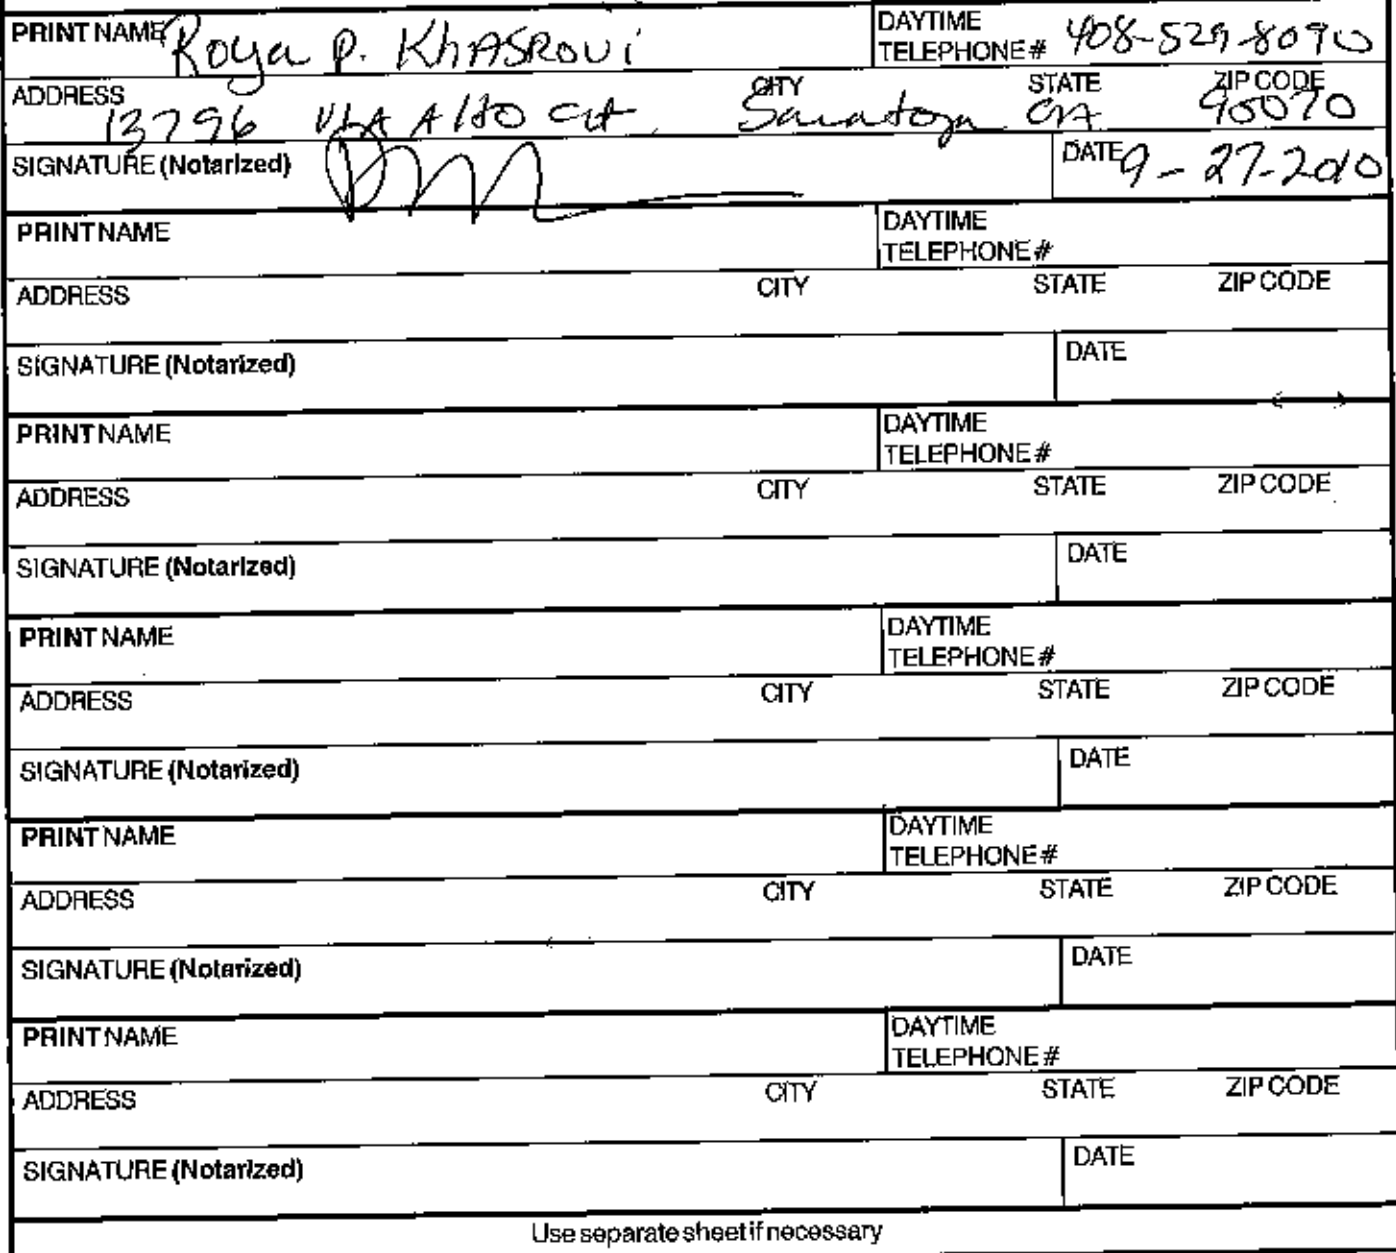 PRINT NAME Roya P. KhASROVi DAYTIME TELEPHONE # 408-529-8090
ADDRESS CITY STATE ZIP CODE
13796 VIA Alto Crt Saratoga CA 95070
SIGNATURE (Notarized) DATE 9-27-2010
PRINT NAME DAYTIME TELEPHONE #
ADDRESS CITY STATE ZIP CODE
SIGNATURE (Notarized) DATE
PRINT NAME DAYTIME TELEPHONE #
ADDRESS CITY STATE ZIP CODE
SIGNATURE (Notarized) DATE
PRINT NAME DAYTIME TELEPHONE #
ADDRESS CITY STATE ZIP CODE
SIGNATURE (Notarized) DATE
PRINT NAME DAYTIME TELEPHONE #
ADDRESS CITY STATE ZIP CODE
SIGNATURE (Notarized) DATE
PRINT NAME DAYTIME TELEPHONE #
ADDRESS CITY STATE ZIP CODE
SIGNATURE (Notarized) DATE
Use separate sheet if necessary